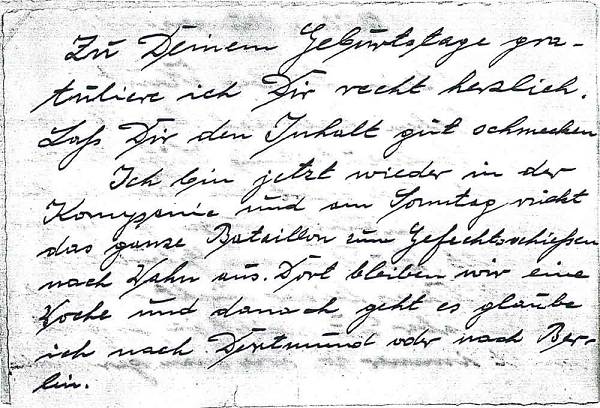 Zu Deinem Geburtstage gra-
tuliere ich Dir recht herzlich.
Lass Dir den Inhalt gut schmecken
Ich bin jetzt wieder in der
Kompanie und am Sonntag rückt
das ganze Bataillon zum Gefechtsschießen
nach Wahn aus. Dort bleiben wir eine
Woche und danach geht es glaube
ich nach Dortmund oder nach Ber-
lin.